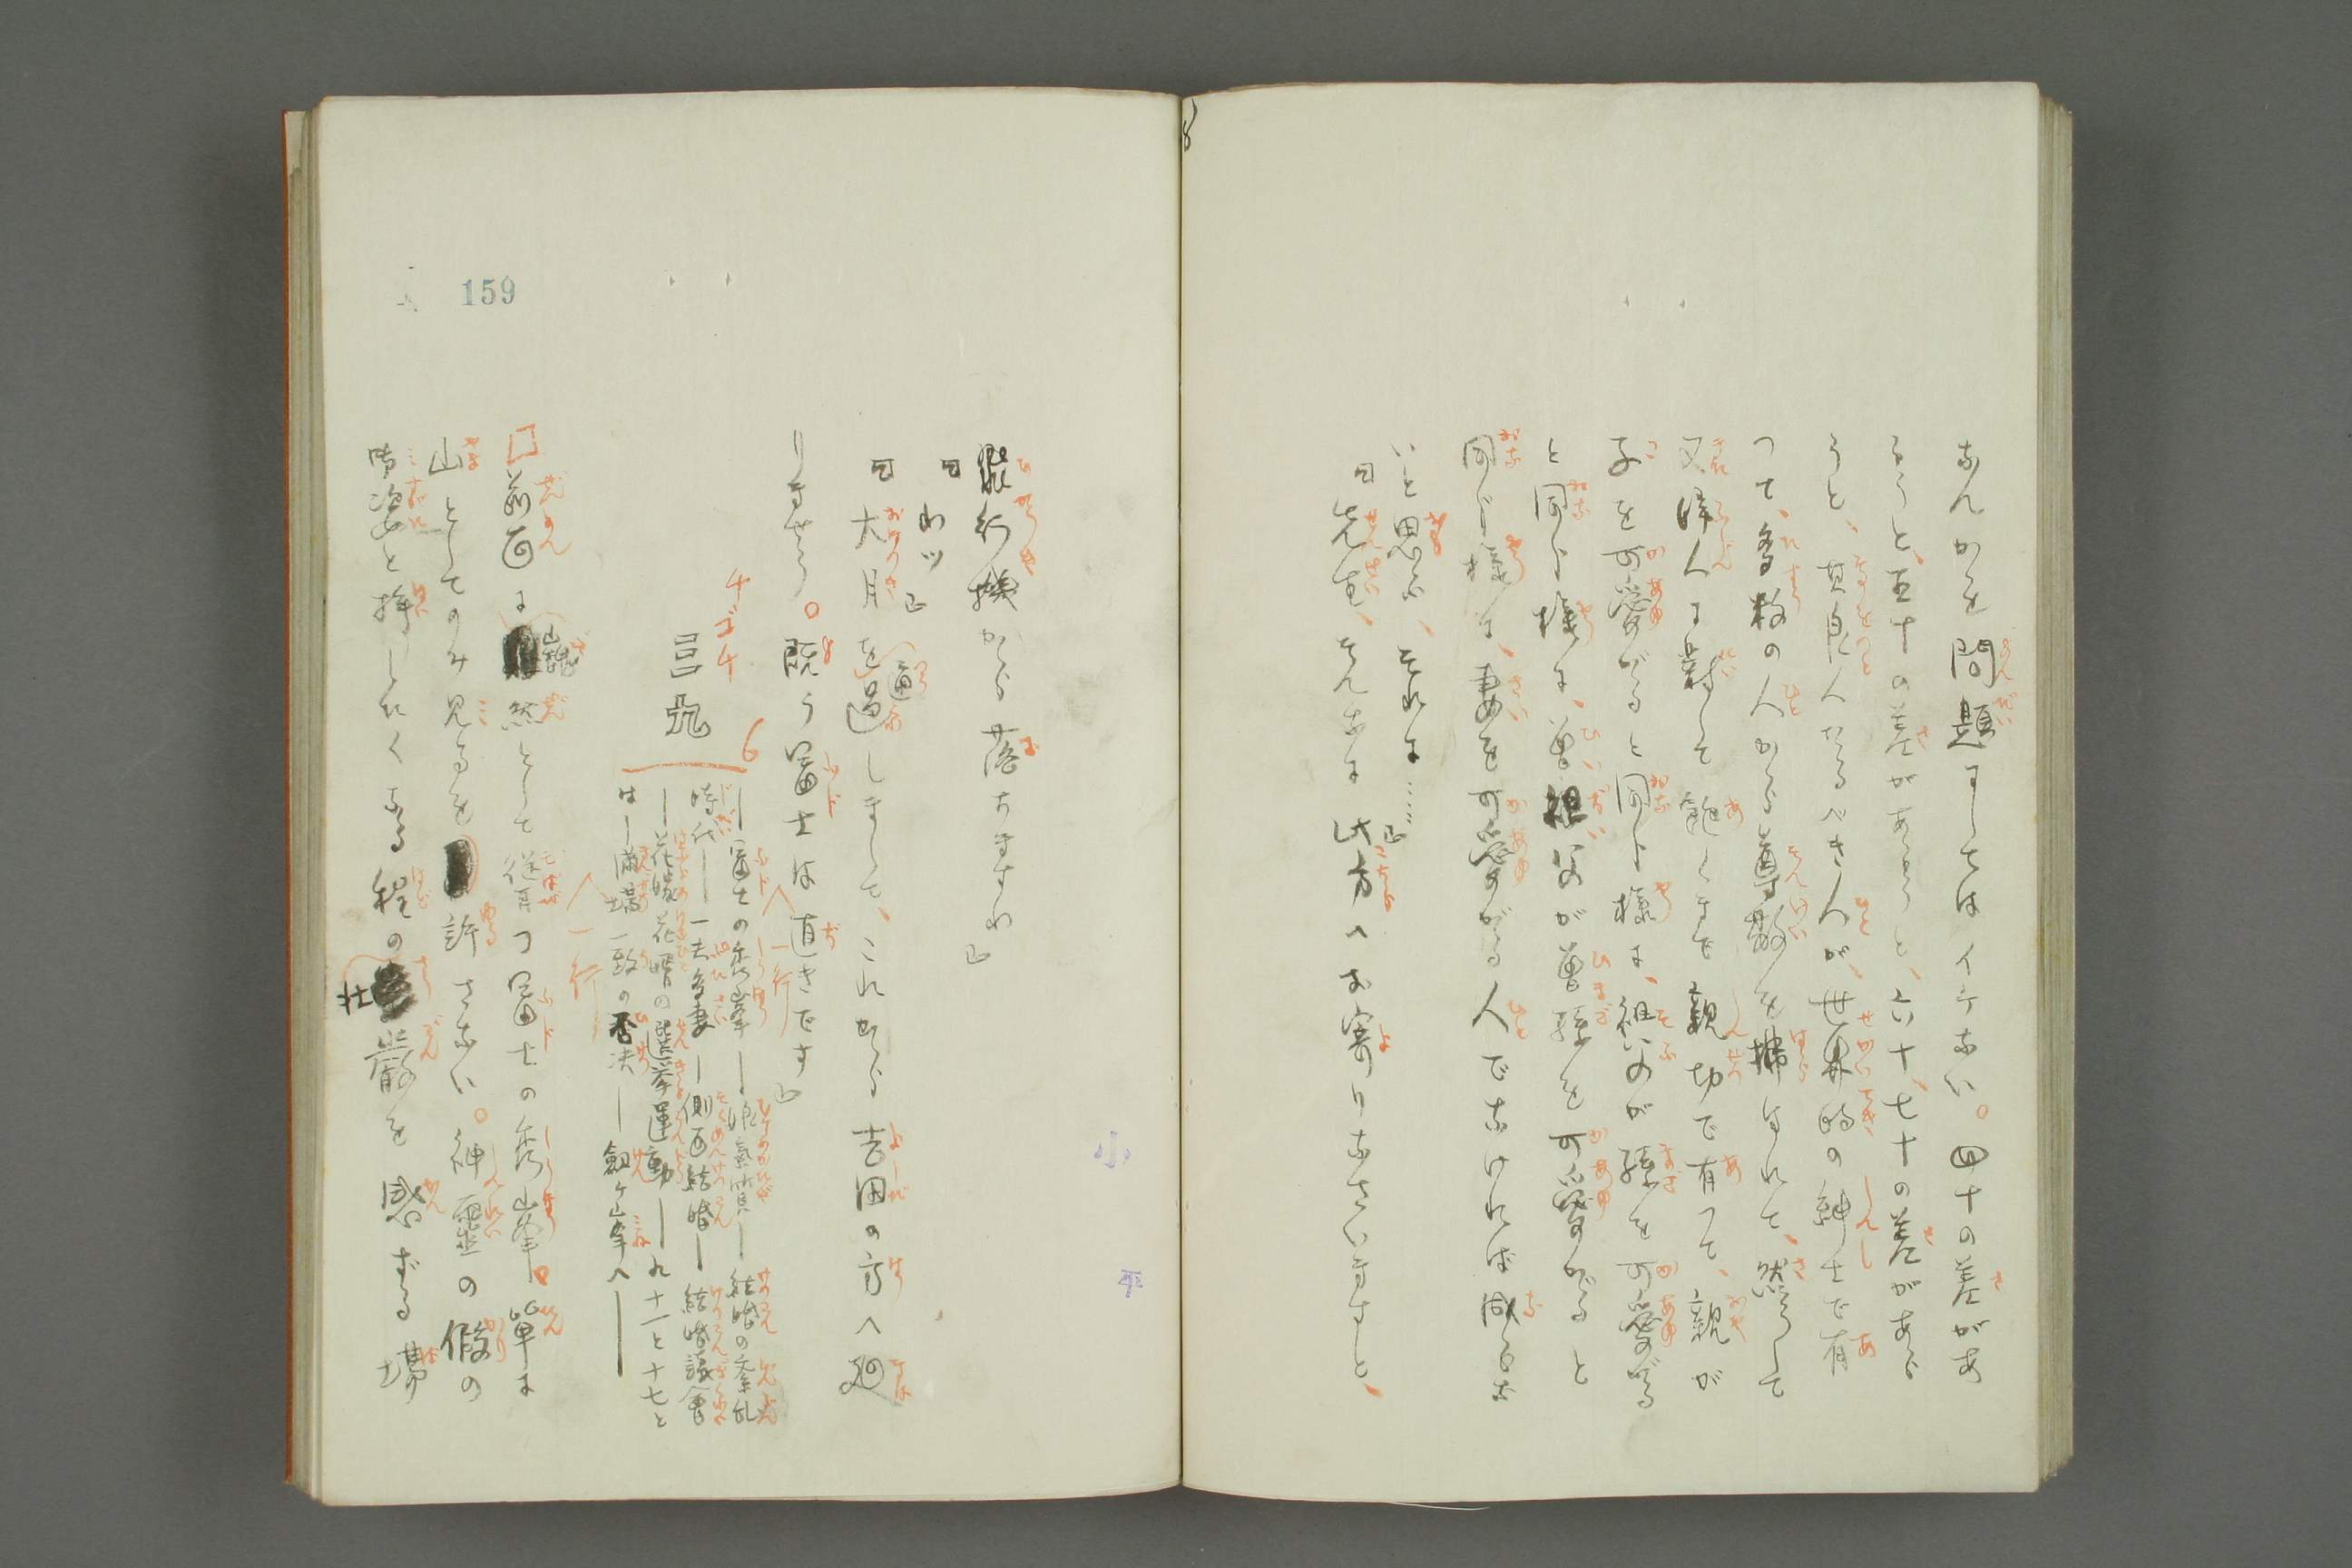 なんかを問題にしてはイケない。四十の差があ
らうと、五十の差があらうと、六十、七十の差があら
うと、其良人たるべき人が、世界的の紳士で有
つて、多数の人から尊敬を拂はれて、然うして
又婦人に對して飽くまで親切で有つて、親が
子を可愛がると同じ様に、祖父が孫を可愛がる
と同じ様に、曾祖父が曾孫を可愛がると
同じ様に、妻を可愛がる人でなければ成らな
いと思ふ、それに……』
『先生、そんなに此方へお寄りなさいますと、
小
平
飛行機から落ちますわ』
『わッ』
『大月を通過しまして、これから吉田の方へ廻
りませう。既う富士は直きです』
一行
チゴチ
6
―富士の秀峯――結婚の紊乱
時代―一夫多妻―側面結婚―結婚議會
―花嫁花婿の選挙運動―九十一と十七と
は―滿場一致の否決―劔ヶ峯へ――
一行
前面に巍然として聳立つ富士の秀峯。單に
山としてのみ見るを許さない。神靈の假の
御姿と拝したくなる程の壮嚴を感ずる場
159